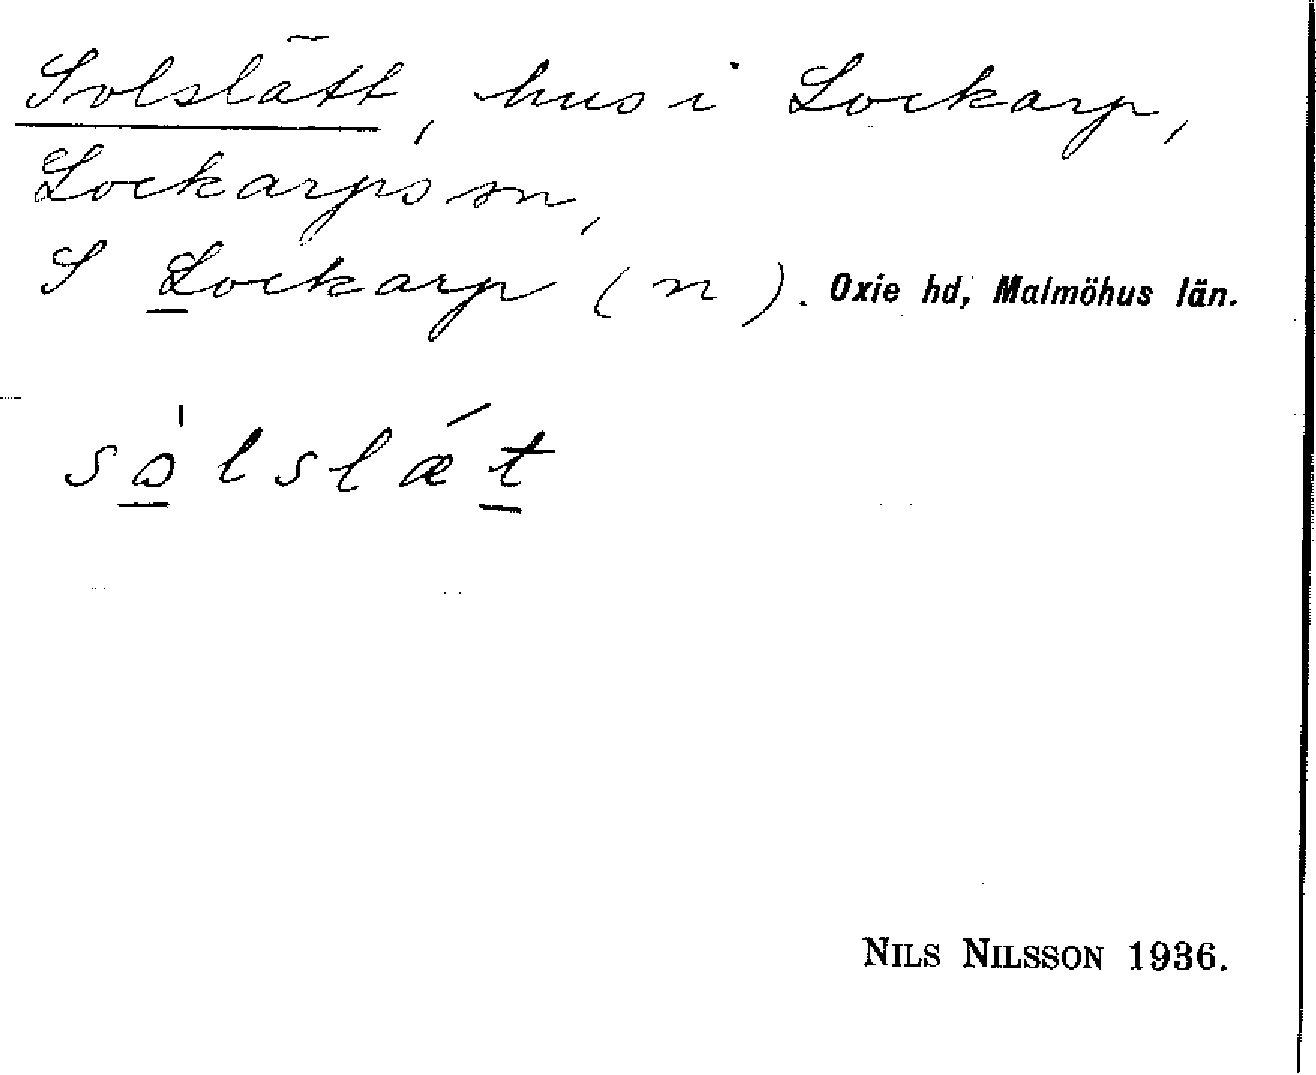 Solslätt, hus i Lockarp,
Lockarps sn,
S Lockarp (n). Oxie hd, Malmöhus län.
sòlslǽt
NILS NILSSON 1936.